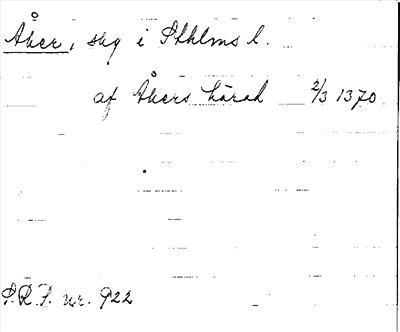 Åker, shg i Sthlms l.
af Åkers härad 2/3 1370
S.R.P. nr. 922